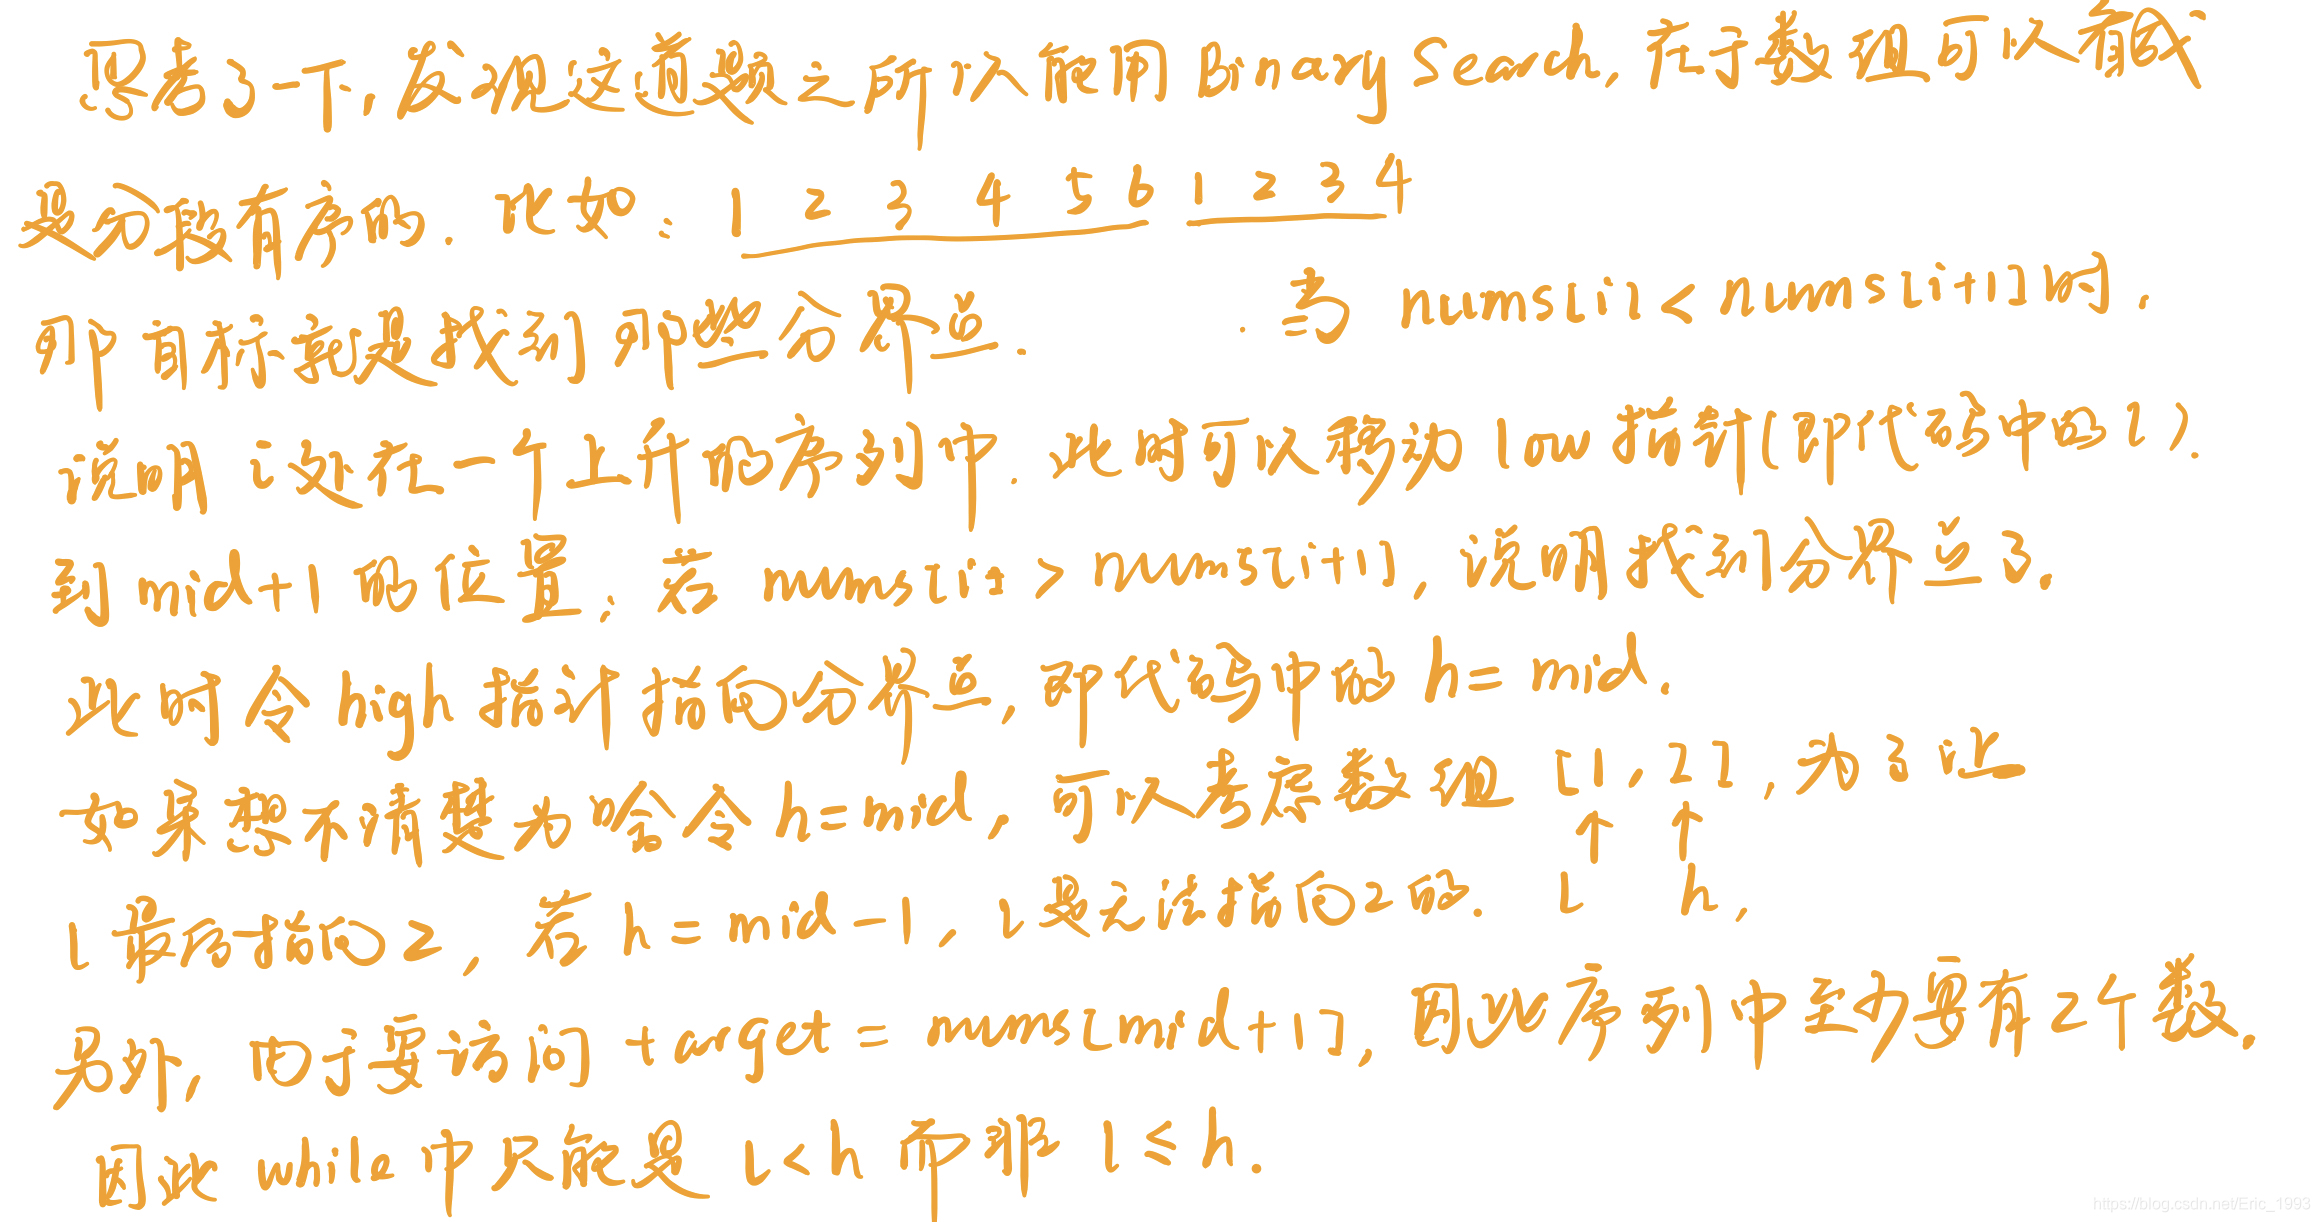 思考了一下, 发现这道题之所以能用Binary Search, 在于数组可以看成
是分段有序的. 比如: 1 2 3 4 5 6 1 2 3 4
即目标就是找到那些分界点. . 当 nums[i] < nums[i+1] 时,
说明 i 处在一个上升的序列中. 此时可以移动 low 指针(即代码中的 l).
到 mid+1 的位置; 若 nums[i] > nums[i+1], 说明找到分界点了.
此时令 high 指针指向分界点, 即代码中的 h = mid.
如果想不清楚为啥令 h = mid, 可以考虑数组 [1, 2], 为了让
l 最后指向2, 若 h = mid - 1, l 是无法指向2的. l h,
另外, 由于要访问 target = nums[mid+1], 因此序列中至少要有2个数.
因此 while 中只能是 l < h 而非 l ≤ h.
https://blog.csdn.net/Eric_1993